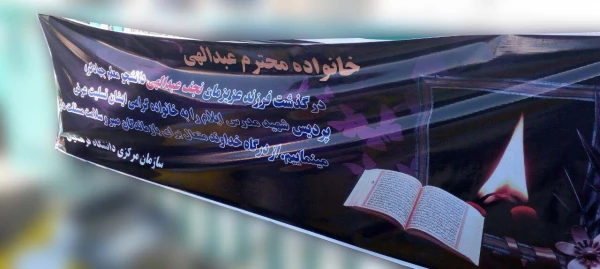 خانواده محترم عبدالهی
درگذشت فرزند عزیزمان نجف عبدالهی دانشجو معلم جهادی
پردیس شهید مدرس ایلام را به خانواده گرامی ایشان تسلیت عرض
مینماییم. از درگاه خداوند متعال برای بازماندگان صبر و سلامت مسئلت
سازمان مرکزی دانشگاه فرهنگیان